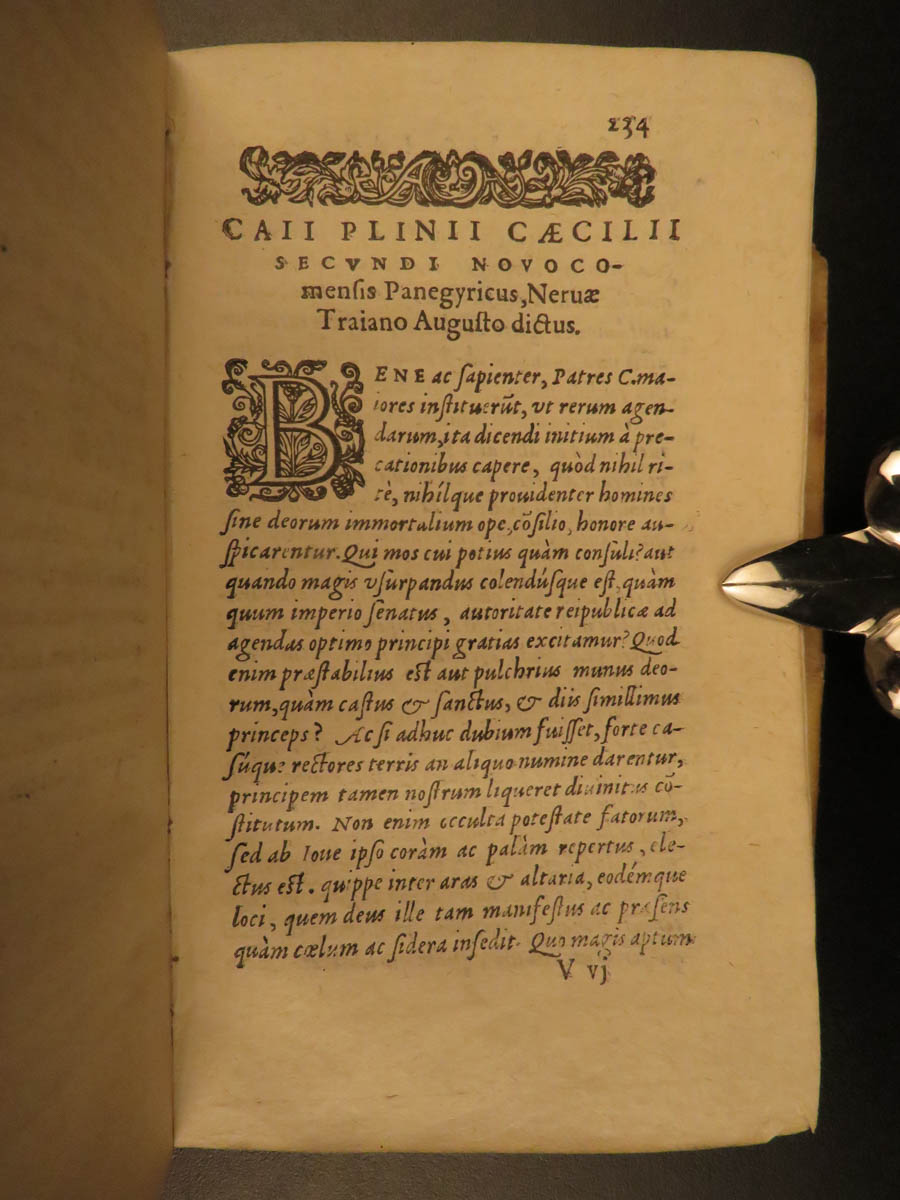 234
CAII PLINII CÆCILII
SECVNDI NOVOCO-
mensis Panegyricus, Neruæ
Traiano Augusto dictus.
BENE ac sapienter, Patres C. ma-
iores instituerūt, vt rerum agen-
darum, ita dicendi initium à pre-
cationibus capere, quòd nihil ri-
tè, nihílque prouidenter homines
sine deorum immortalium ope, cōsilio, honore au-
spicarentur. Qui mos cui potius quàm consuli? aut
quando magis vsurpandus colendúsque est, quàm
quum imperio senatus, autoritate reipublicæ ad
agendas optimo principi gratias excitamur? Quod
enim præstabilius est aut pulchrius munus deo-
rum, quàm castus & sanctus, & diis simillimus
princeps? Ac si adhuc dubium fuisset, forte ca-
súque rectores terris an aliquo numine darentur,
principem tamen nostrum liqueret diuinitus cō-
stitutum. Non enim occulta potestate fatorum,
sed ab Ioue ipso coràm ac palàm repertus, ele-
ctus est. quippe inter aras & altaria, eodémque
loci, quem deus ille tam manifestus ac præsens
quàm cœlum ac sidera insedit. Quo magis aptum
V vj